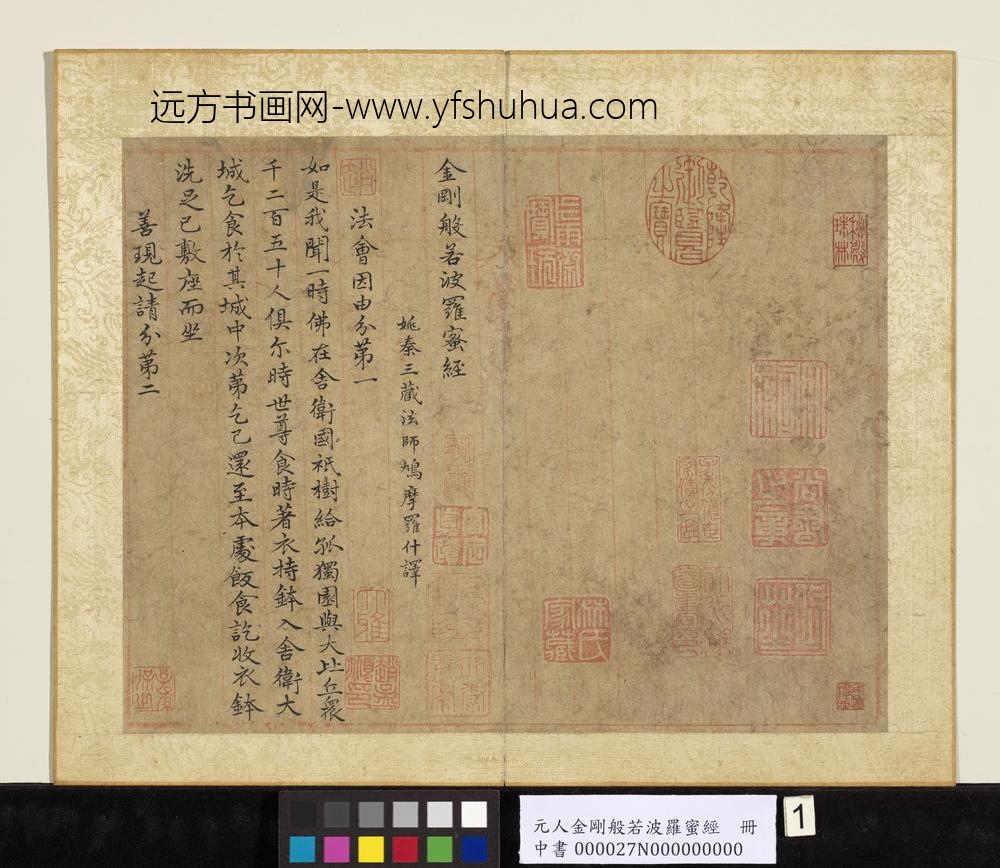 远方书画网-www.yfshuhua.com
乾隆御覽之寶
秘殿珠林
林氏家藏
金剛般若波羅蜜經
姚秦三藏法師鳩摩羅什譯
法會因由分第一
如是我聞一時佛在舍衛國祇樹給孤獨園與大比丘衆
千二百五十人俱尒時世尊食時著衣持鉢入舍衛大
城乞食於其城中次第乞已還至本處飯食訖收衣鉢
洗足已敷座而坐
善現起請分第二
元人金剛般若波羅蜜經 冊
中書 000027N000000000
1